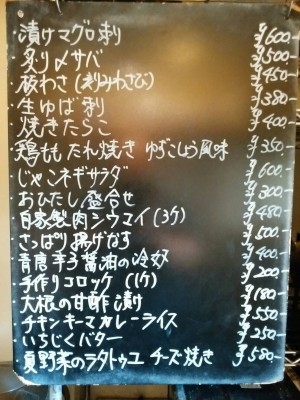 漬けマグロ刺 ¥600-
炙り〆サバ ¥500-
板わさ(刻みわさび) ¥450-
生ゆば刺 ¥380-
焼きたらこ ¥400-
鶏もも たれ焼き ゆずこしょう風味 ¥350-
じゃこネギサラダ ¥600-
おひたし盛合せ ¥300-
自家製肉シウマイ(3ケ) ¥480-
さっぱり揚げなす ¥500-
青唐辛子醤油の冷奴 ¥400-
手作りコロッケ (1ケ) ¥200-
大根の甘酢漬け ¥180-
チキンキーマカレーライス ¥550-
いちじくバター ¥250-
夏野菜のラタトゥユ チーズ焼き ¥580-